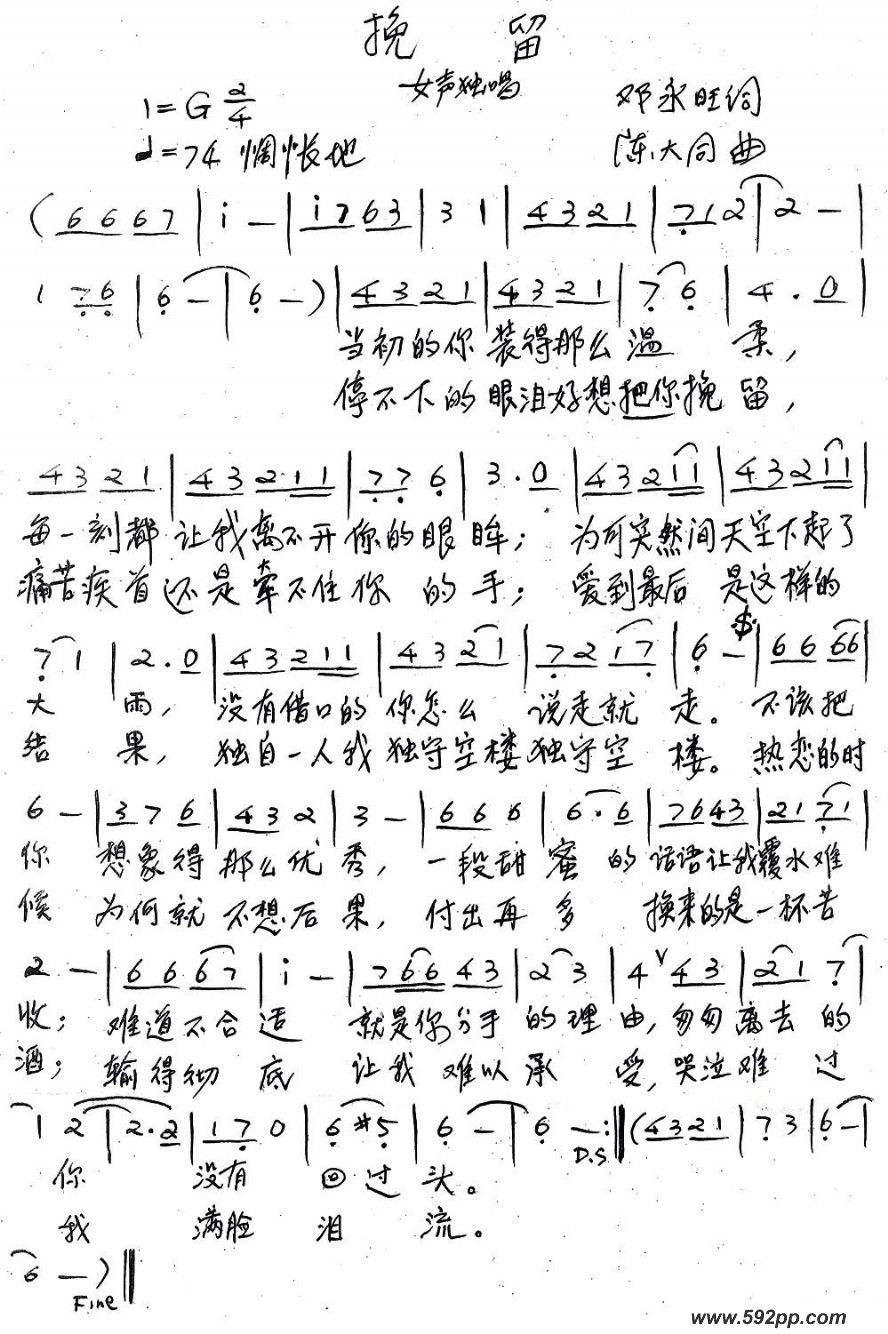 挽 留
女声独唱
1=G 2/4
邓永旺词
♩=74 惆怅地
陈大同曲
( 6 6 6 7 | i - | i 7 6 3 | 3 1 | 4 3 2 1 | 7 1 2 | 2 - |
1 7 6 | 6 - | 6 - ) | 4 3 2 1 | 4 3 2 1 | 7 6 | 4 . 0 |
当初的你 装得那么 温 柔,
停不下的 眼泪好想把你挽 留,
4 3 2 1 | 4 3 2 1 1 | 7 7 6 | 3 . 0 | 4 3 2 1 1 | 4 3 2 1 1 |
每一刻都 让我离不开 你的眼 眸; 为何突然间天空下起了
痛苦疾首还是牵不住你 的 手; 爱到最后 是这样的
7 1 | 2 . 0 | 4 3 2 1 1 | 4 3 2 1 | 7 2 1 7 | 6 - | 6 6 6 6 |
大 雨, 没有借口的你怎么 说走就 走。 不该把
结 果, 独自一人我独守空楼独守空 楼。 热恋的时
6 - | 3 7 6 | 4 3 2 | 3 - | 6 6 6 | 6 . 6 | 7 6 4 3 | 2 1 7 1 |
你 想象得 那么优 秀, 一段甜 蜜 的 话语让我覆水难
候 为何就 不想后 果, 付出再 多 换来的是一杯苦
2 - | 6 6 6 7 | i - | 7 6 6 4 3 | 2 3 | 4 ∨ 4 3 | 2 1 7 |
收; 难道不合 适 就是你分手 的理 由, 匆匆 离去 的
酒; 输得彻 底 让我 难以承 受, 哭泣难 过
1 2 | 2 . 2 | 1 7 0 | 6 #5 | 6 - | 6 - :‖ ( 4 3 2 1 | 7 3 | 6 - |
D.S
你 没有 回 过 头。
我 满脸 泪 流。
6 - ) ‖
Fine
www.592pp.com